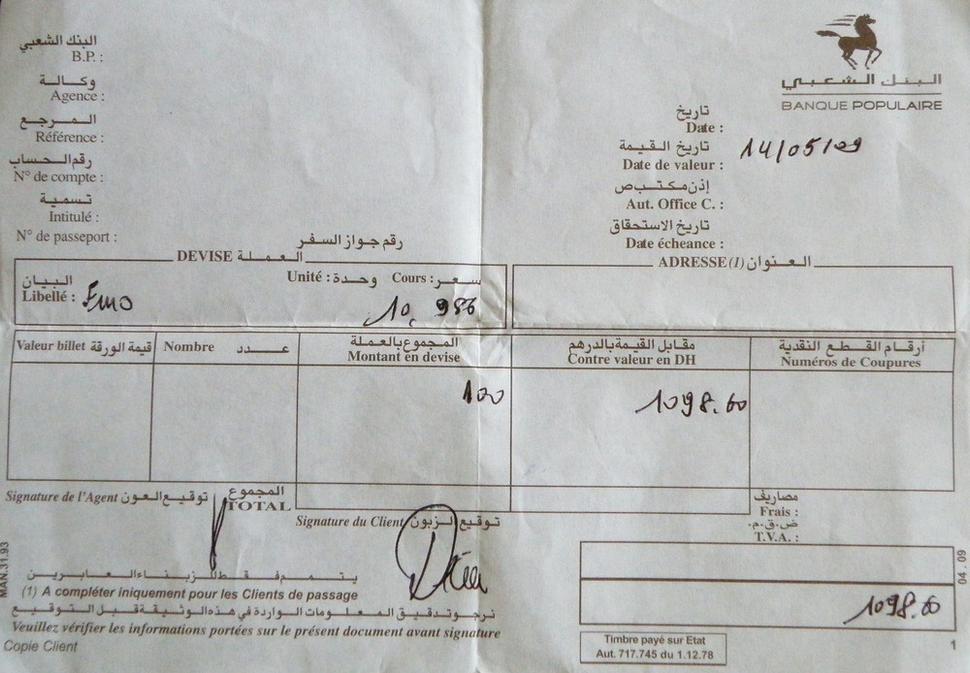 البنك الشعبي
B.P. :
وكالة
Agence :
المرجع
Référence :
رقم الحساب
N° de compte :
تسمية
Intitulé :
N° de passeport : رقم جواز السفر
البنك الشعبي
BANQUE POPULAIRE
تاريخ
Date :
تاريخ القيمة
Date de valeur : 14/05/09
إذن مكتب ص
Aut. Office C. :
تاريخ الاستحقاق
Date écheance :
DEVISE العملة
البيان Unité : وحدة Cours : سعر
Libellé : 10,986
ADRESSE (1) العنوان
Valeur billet قيمة الورقة
Nombre عدد
المجموع بالعملة
Montant en devise
مقابل القيمة بالدرهم
Contre valeur en DH
أرقام القطع النقدية
Numéros de Coupures
100 1098.60
Signature de l'Agent توقيع العون
المجموع
TOTAL
Signature du Client توقيع الزبون
مصاريف
Frais :
ض.ق.م.
T.V.A. :
1098.60
يتمم فقط للزبناء العابرين
(1) A compléter iniquement pour les Clients de passage
نرجو تدقيق المعلومات الواردة في هذه الوثيقة قبل التوقيع
Veuillez vérifier les informations portées sur le présent document avant signature
Copie Client
Timbre payé sur Etat
Aut. 717.745 du 1.12.78
1
MAN.31.93
04.09